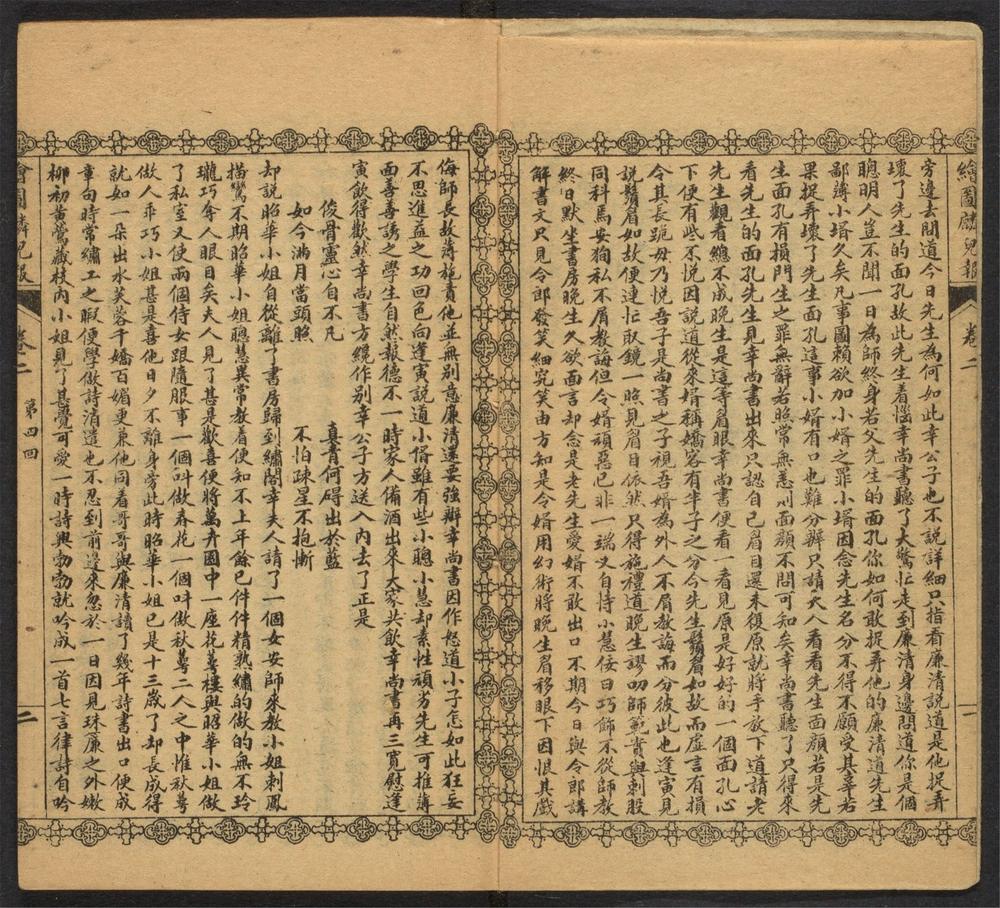 繪圖麟兒報
卷二
一
旁邊去問道今日先生為何如此幸公子也不說詳細只指着廉清說道是他捉弄
壞了先生的面孔故此先生着惱幸尚書聽了大驚忙走到廉清身邊問道你是個
聰明人豈不聞一日為師終身若父先生的面孔你如何敢捉弄他的廉清道先生
鄙薄小壻久矣凡事圖賴欲加小壻之罪小壻因念先生名分不得不顧受其辜若
果捉弄壞了先生面孔這事小婿有口也難分辨只請大人看看先生面顏若是先
生面孔有損門生之罪無辭若照常無恙則面顏不問可知矣幸尚書聽了只得來
看先生的面孔先生見幸尚書出來只認自己眉目還未復原就將手放下道請老
先生觀看總不成晚生是這等眉眼幸尚書便看一看見原是好好的一個面孔心
下便有些不悅因說道從來婿稱嬌客有半子之分今先生鬚眉如故而虛言有損
令其長跪毋乃悅吾子是尚書之子視吾婿為外人不屑教誨而分彼此也逢寅見
說鬚眉如故便連忙取鏡一照見眉目依然只得施禮道晚生謬叨師範賁與刺股
同科馬安狗私不屑教誨但令婿頑惡已非一端又自恃小慧佞日巧飾不從師教
終日默坐書房晚生久欲面言却念是老先生愛婿不敢出口不期今日與令郎講
解書文只見令郎發笑細究笑由方知是令婿用幻術將晚生眉移眼下因恨其戲
侮師長故薄施責他並無別意廉清還要強辦幸尚書因作怒道小子怎如此狂妄
不思進益之功回色向逢寅說道小僧雖有些小聰小慧却素性頑劣先生可推薄
面善善誘之學生自然報德不一時家人備酒出來大家共飲幸尚書再三寬慰逢
寅飲得歡然幸尚書方纔作別幸公子方送入內去了正是
俊骨靈心自不凡　真青何碍出於藍
如今滿月當頭照　不怕疎星不抱慚
却說昭華小姐自從離了書房歸到繡閣幸夫人請了一個女安師來教小姐刺鳳
描鸞不期昭華小姐聰慧異常教着便知不上年餘已件件精熟繡的做的無不玲
瓏巧奪人眼目矣夫人見了甚是歡喜便將萬卉園中一座花萼樓與昭華小姐做
了私室又使兩個侍女跟隨服事一個叫做春花一個叫做秋萼二人之中惟秋萼
做人乖巧小姐甚是喜他日夕不離身旁此時昭華小姐已是十三歲了却長成得
就如一朵出水芙蓉千嬌百媚更兼他同着哥哥與廉清讀了幾年詩書出口便成
章句時常繡工之暇便學做詩消遣也不忍到前邊來忽於一日因見珠簾之外嫩
柳初黃鶯藏枝內小姐見了甚覺可愛一時詩興勃勃就吟成一首七言律詩自吟
繪圖麟兒報
卷二
第四回
二